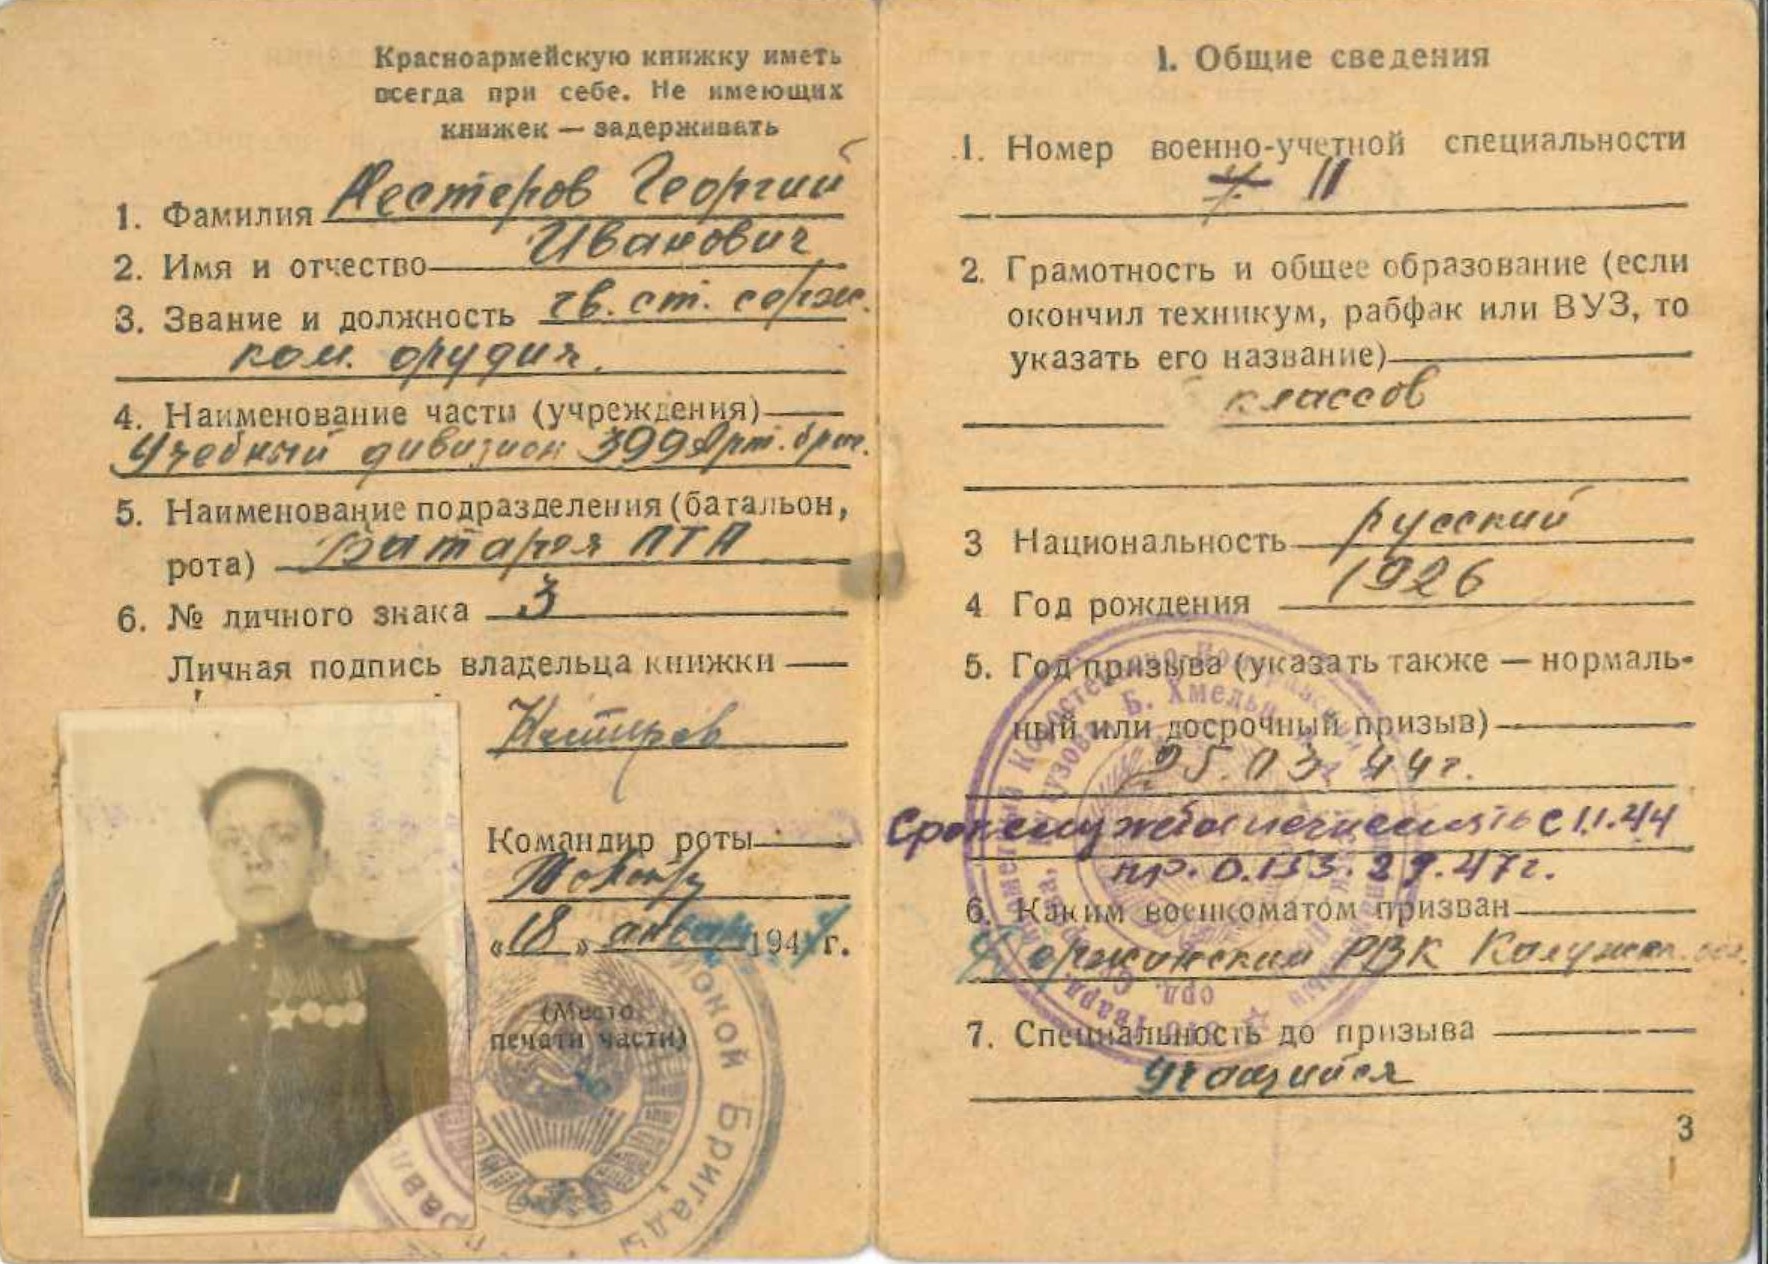 Красноармейскую книжку иметь
всегда при себе. Не имеющих
книжек — задерживать
1. Фамилия Нестеров Георгий
2. Имя и отчество Иванович
3. Звание и должность гв. ст. серж.
ком. орудия.
4. Наименование части (учреждения)
Учебный дивизион 399 Арт. бриг.
5. Наименование подразделения (батальон,
рота) Батарея ПТА
6. № личного знака 3
Личная подпись владельца книжки
Нестеров
Командир роты
«18» января 194 г.
(Место
печати части)
Бригады
I. Общие сведения
1. Номер военно-учетной специальности
11
2. Грамотность и общее образование (если
окончил техникум, рабфак или ВУЗ, то
указать его название)
классов
3 Национальность русский
4 Год рождения 1926
5. Год призыва (указать также — нормаль-
ный или досрочный призыв)
25.03.44г.
Срок службы исчислять с 1.1.44
пр. 0.153. 29.47г.
6. Каким военкоматом призван
РВК Калужск. обл.
7. Специальность до призыва
учащийся
3